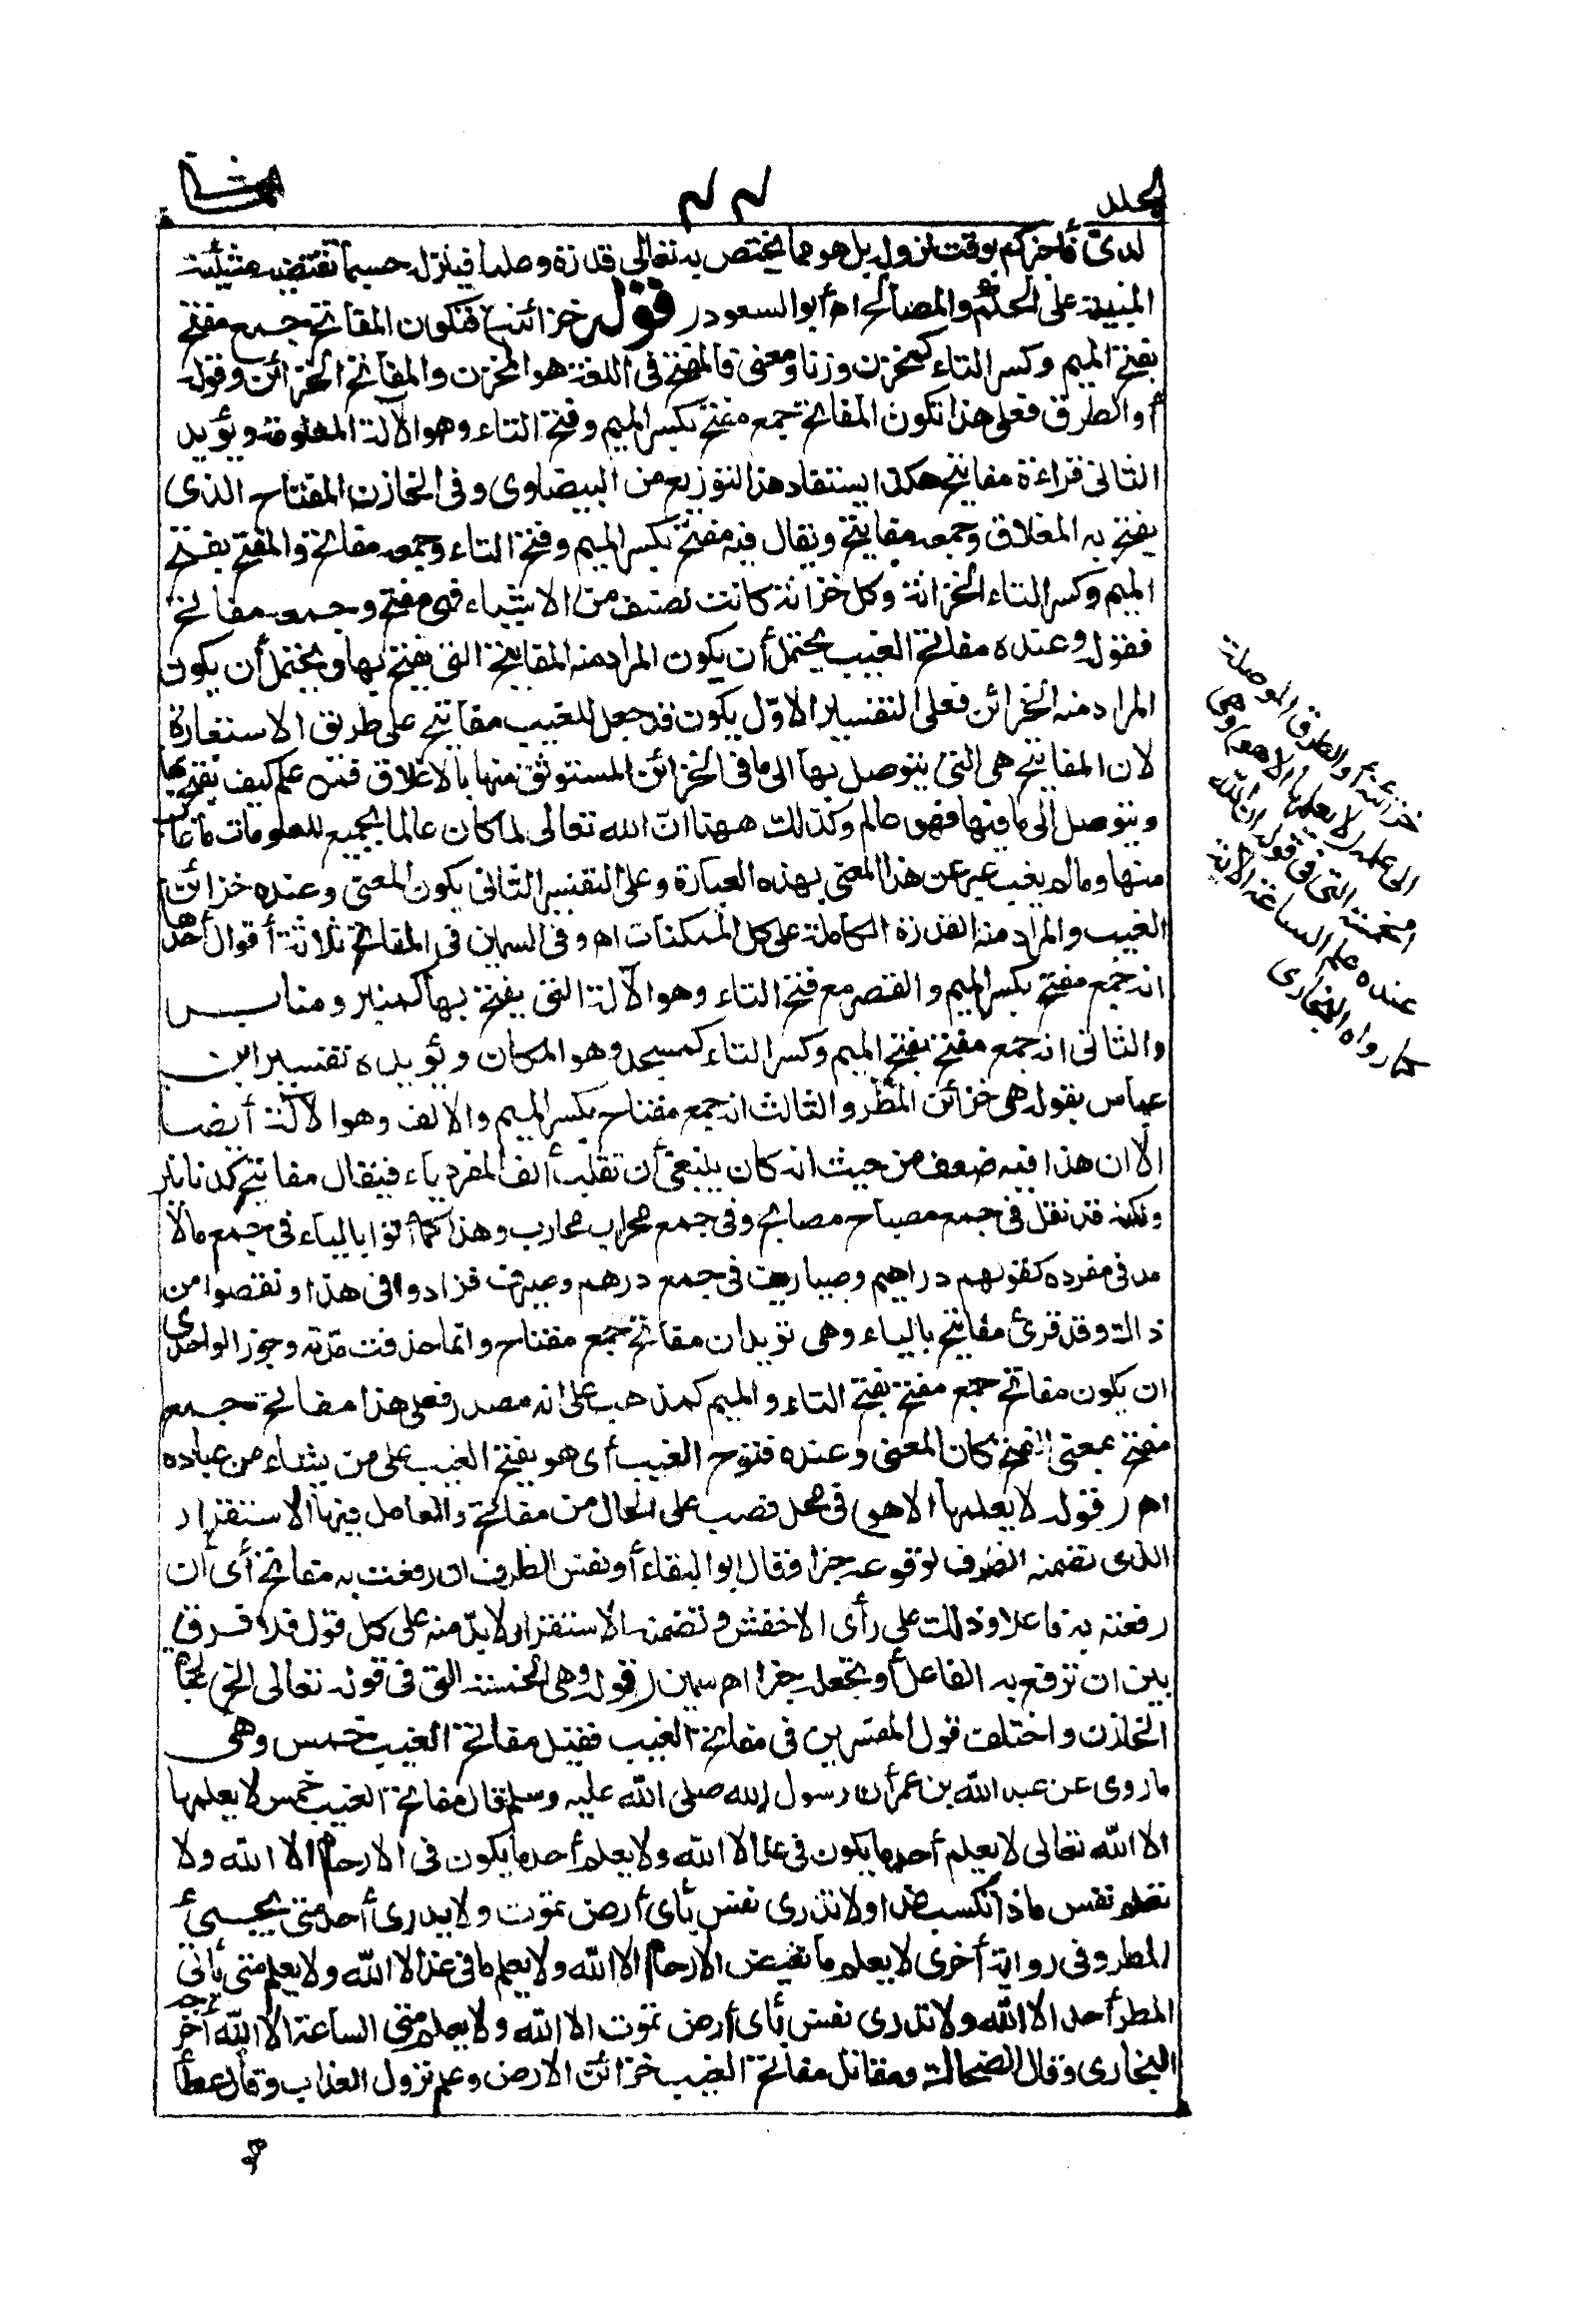 الجلد ٢٢ الثانى
لدىّ فأخبركم بوقت نزوله بل هو مما يختص به تعالى قدرة وعلما فينزله حسبما تقتضيه مشيئته
المبنية على الحكم والمصالح اه أبو السعود ( قوله خزائنه ) فتكون المفاتح جمع مفتح
بفتح الميم وكسر التاء كمخزن وزنا ومعنى فالمفتح فى اللغة هو المخزن والمفاتح الخزائن وقوله
أو الطرق فعلى هذا تكون المفاتح جمع مفتح بكسر الميم وفتح التاء وهو الآلة المعلومة ويؤيد
الثانى قراءة مفاتيح هكذا يستفاد هذا التوزيع من البيضاوى وفى الخازن المفتاح الذى
يفتح به المغلاق وجمعه مفاتيح ويقال فيه مفتح بكسر الميم وفتح التاء وجمعه مفاتح والمفتح بفتح
الميم وكسر التاء الخزانة وكل خزانة كانت لصنف من الاشياء فهى مفتح وجمعه مفاتح
فقوله وعنده مفاتح الغيب يحتمل أن يكون المراد منه المفاتيح التى يفتح بها ويحتمل أن يكون
المراد منه الخزائن فعلى التفسير الاوّل يكون قد جعل للغيب مفاتيح على طريق الاستعارة
لان المفاتيح هى التى يتوصل بها الى ما فى الخزائن المستوثق منها بالاغلاق فمن علم كيف يفتح بها
ويتوصل الى ما فيها فهو عالم وكذلك ههنا انّ الله تعالى لما كان عالما بجميع المعلومات ما غاب
منها وما لم يغب عبر عن هذا المعنى بهذه العبارة وعلى التفسير الثانى يكون المعنى وعنده خزائن
الغيب والمراد منه القدرة الكاملة على كل الممكنات اه وفى السمين فى المفاتح ثلاثة أقوال أحدها
انه جمع مفتح بكسر الميم والقصر مع فتح التاء وهو الآلة التى يفتح بها كمنبر ومنابر
والثانى انه جمع مفتح بفتح الميم وكسر التاء كمسجد وهو المكان ويؤيده تفسير ابن
عباس بقوله هى خزائن المطر والثالث انه جمع مفتاح بكسر الميم والالف وهو الآلة أيضا
الا ان هذا فيه ضعف من حيث انه كان ينبغى أن تقلب ألف المفرد ياء فيقال مفاتيح كدنانير
ولكنه قد نقل فى جمع مصباح مصابح وفى جمع محراب محارب وهذا كما أتوا بالياء فى جمع ما لا
مد فى مفرده كقولهم دراهيم وصياريف فى جمع درهم وصيرف فزادوا فى هذا ونقصوا من
ذالك وقد قرئ مفاتيح بالياء وهى تؤيد ان مفاتح جمع مفتاح وانما حذفت مدّته وجوز الواحدى
ان يكون مفاتح جمع مفتح بفتح التاء والميم كمذهب على انه مصدر فعلى هذا مفاتح جمع
مفتح بمعنى الفتح كان المعنى وعنده فتوح الغيب أى هو يفتح الغيب على من يشاء من عباده
اه ( قوله لا يعلمها الا هو ) فى محل نصب على الحال من مفاتح والعامل فيها الاستقرار
الذى تضمنه الظرف لوقوعه خبرا فقال ابو البقاء أو نفس الظرف ان رفعت به مفاتح أى ان
رفعته به فاعلا وذلك على رأى الاخفش وتضمنه الاستقرار لا بدّ منه على كل قول فلا فرق
بين ان ترفع به الفاعل أو تجعله خبرا اه سمين ( قوله وهى الخمسة التى فى قوله تعالى الخ ) عبارة
الخازن واختلف قول المفسرين فى مفاتح الغيب فقيل مفاتح الغيب خمس وهى
ما روى عن عبد الله بن عمر أن رسول الله صلى الله عليه وسلم قال مفاتح الغيب خمس لا يعلمها
الا الله تعالى لا يعلم أحد ما يكون فى غد الا الله ولا يعلم أحد ما يكون فى الارحام الا الله ولا
تعلم نفس ماذا تكسب غدا ولا تدرى نفس بأى أرض تموت ولا يدرى أحد متى يجىء
المطر وفى رواية أخرى لا يعلم ما تغيض الارحام الا الله ولا يعلم ما فى غد الا الله ولا يعلم متى يأتى
المطر أحد الا الله ولا تدرى نفس بأى أرض تموت الا الله ولا يعلم متى الساعة الا الله أخرجه
البخارى وقال الضحاك ومقاتل مفاتح الغيب خزائن الارض وعلم نزول العذاب وقال عطا
خزائنه أو الطرق الموصلة
الى علمه ( لا يعلمها الا هو ) وهى
الخمسة التى فى قوله ان الله
عنده علم الساعة الآية
كما رواه البخارى